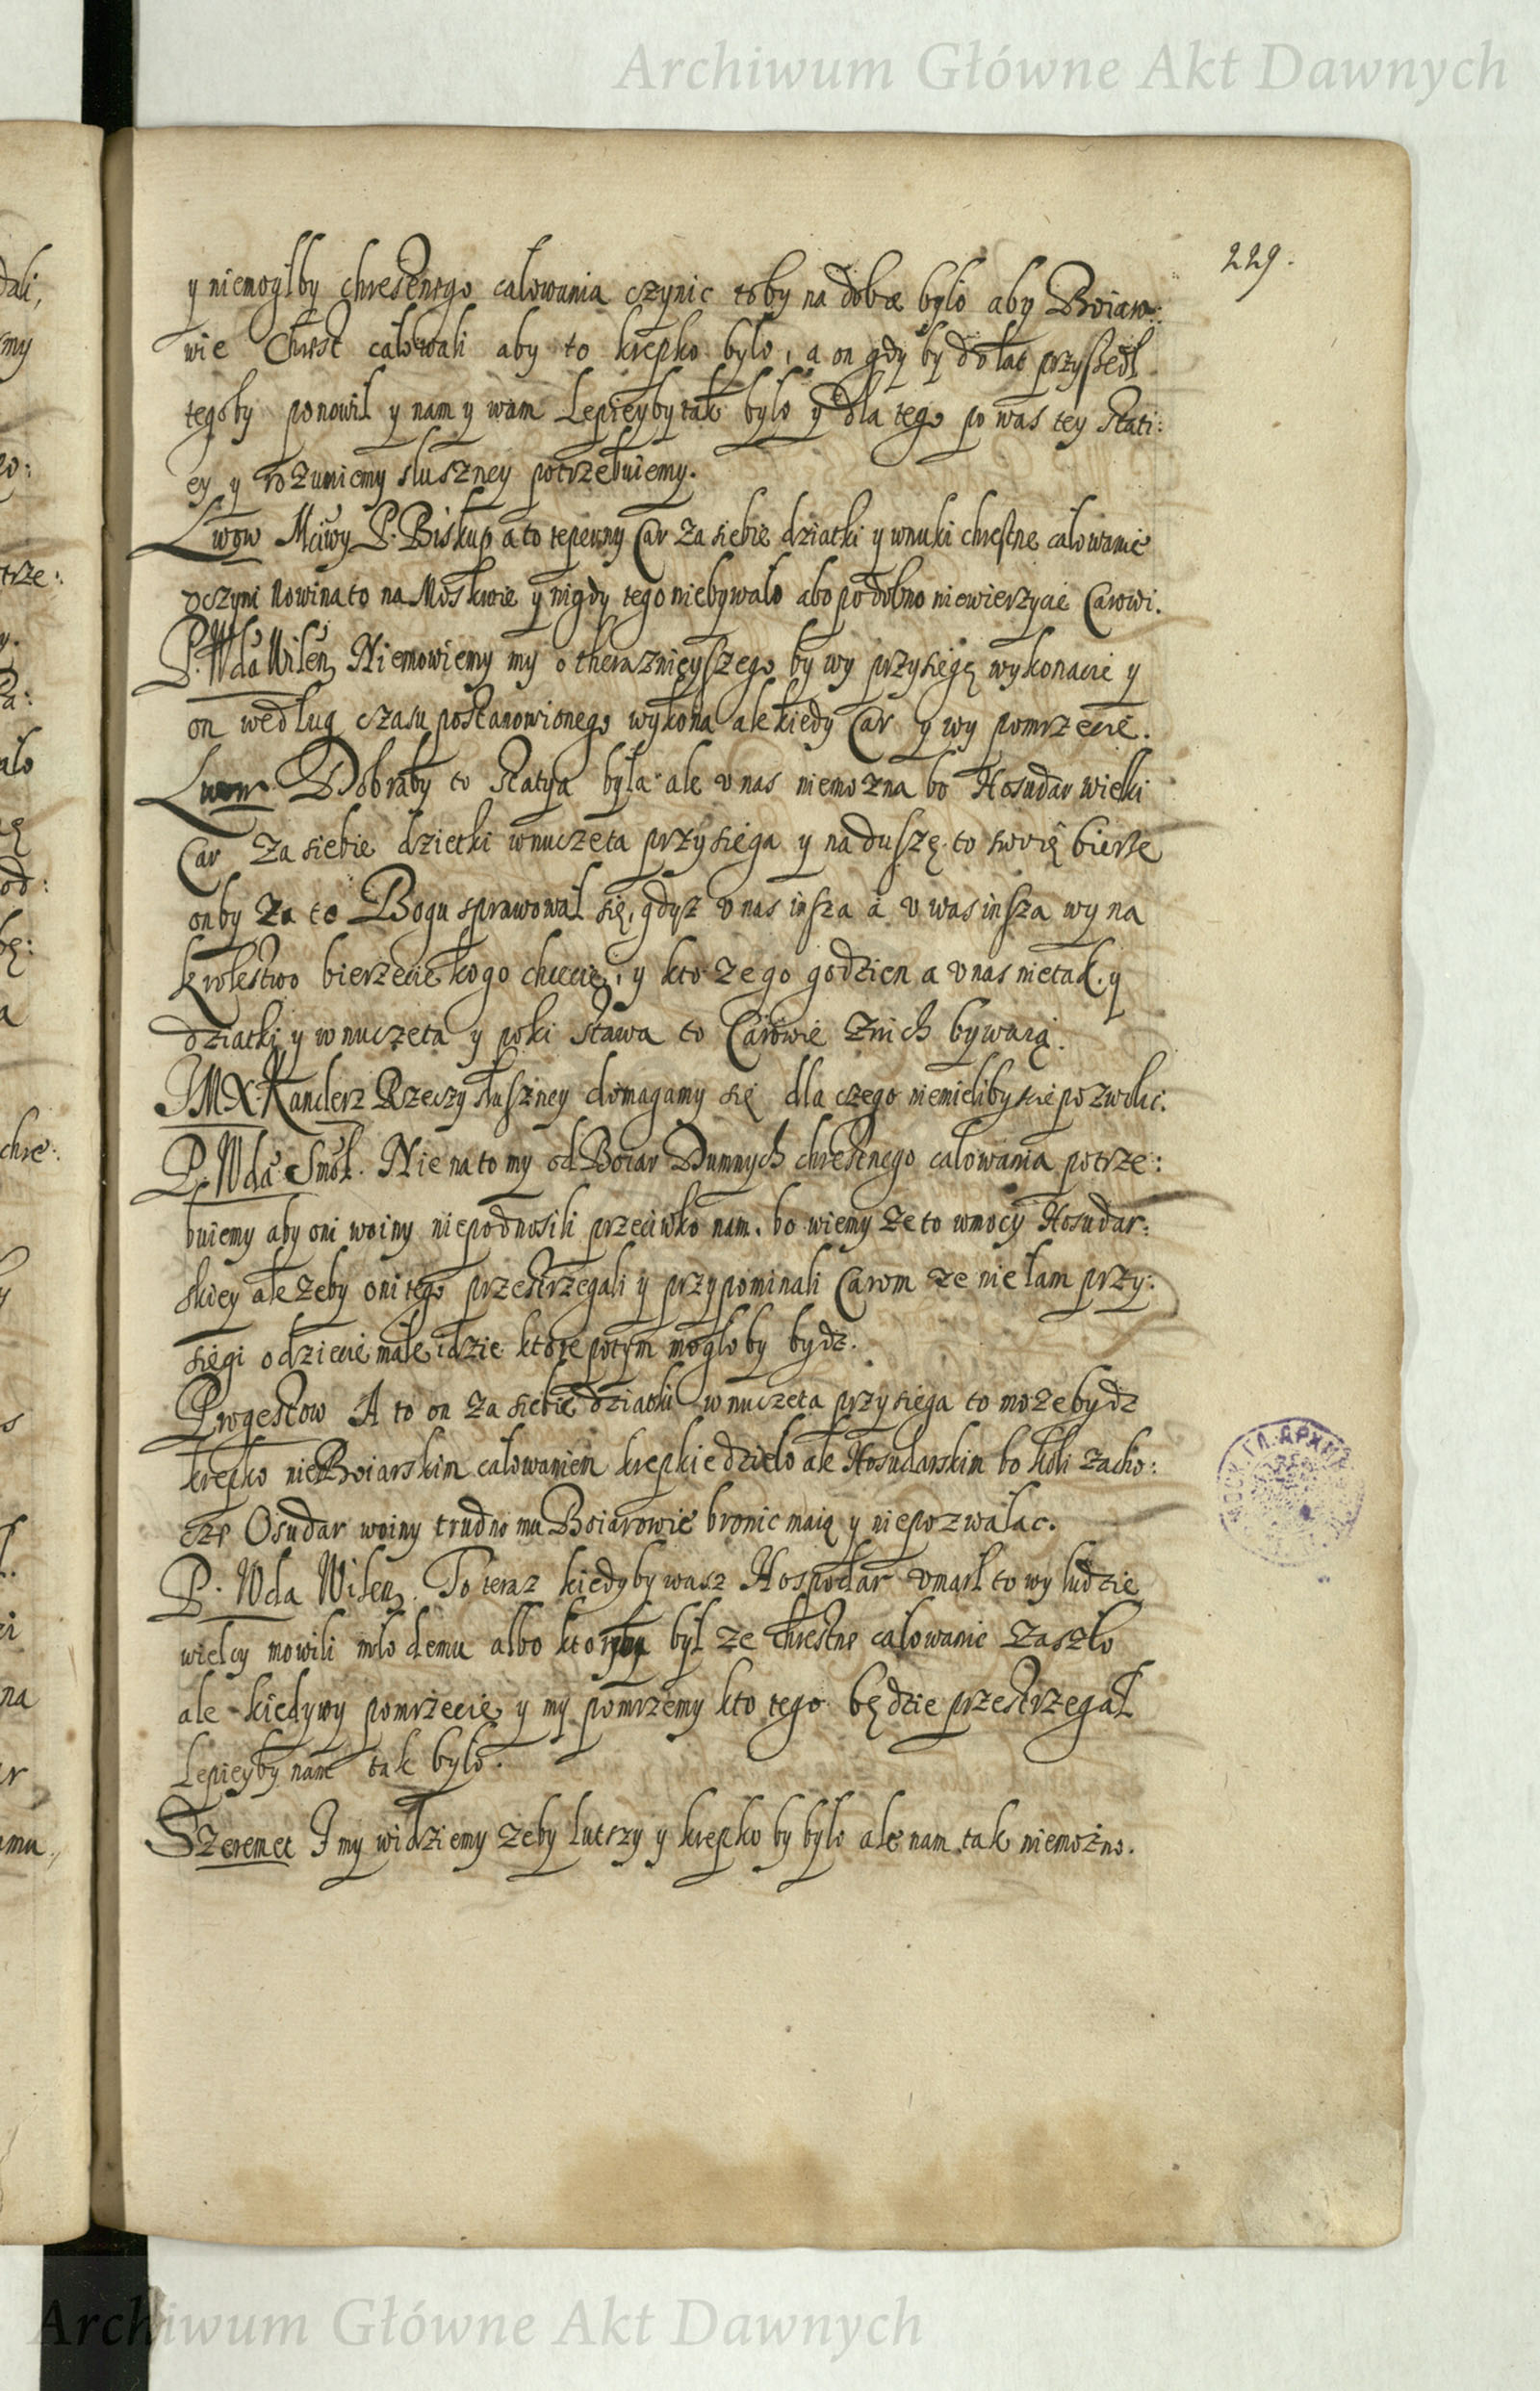 Archiwum Główne Akt Dawnych
229.
y niemogłby chrestnego całowania czynic toby na dobre było aby Boiaro:
wie Chrest całowali aby to krepko było, a on gdy by do lat przyszedł
tegoby ponowił y nam y wam Lepieyby tak było y dla tego po was tey Stati:
ey y rozumiemy słuszney potrzebuiemy.
Lwow Mciwy P. Biskup a to teperny Car za siebie dziatki y wnuki chrestne całowanie
vczyni Nowina to na Moskwie y nigdy tego niebywało abo podobno niewierzycie Carowi.
P. Wda Wilen Niemowiemy my o therazniejszego by wy przysięgę wykonacie y
on według czasu postanowionego wykona ale kiedy Car y wy pomrzecie.
Lwow Dobraby to Statya była ale v nas niemozna bo Hosudar wielki
Car za siebie dzietki wnuczeta przysięga y na duszę to swoię bierze
onby za to Bogu sprawował się, gdyz v nas insza a v was insza wy na
krolestwo bierzecie kogo chcecie, y kto zego godzien a v nas nietak. y
dziatki y wnuczeta y poki stawa to Carowie znich bywaią.
JMX. Kanclerz Rzeczy słuszney domagamy się dla czego niemielibyscie pozwolic.
P. Wda Smol. Nie na to my od Boiar Dumnych chrestnego całowania potrze:
buiemy aby oni woiny niepodnosili przeciwko nam. bo wiemy ze to wmocy Hosudar:
skiey ale zeby oni tego przestrzegali y przypominali Carom ze nie łam przy:
sięgi o dziecie małe idzie ktore potym mogłoby bydz.
Progestow A to on za siebie dziatki wnuczeta przysięga to moze bydz
krepko nie Boiarskim całowaniem krepkie dzieło ale Hosudarskim bo koli zacho:
cze Osudar woiny trudno mu Boiarowie bronic maią y niepozwalac.
P. Wda Wilen. To teraz kiedyby wasz Hospodar vmarł to wy ludzie
wielcy mowili młodemu albo ktoryby był ze chrestne całowanie zaszło
ale kiedy wy pomrzecie y my pomrzemy kto tego będzie przestrzegał
Lepieyby nam tak było.
Szeremet I my widziemy zeby lutszy y krepko by było ale nam tak niemożno.
Archiwum Główne Akt Dawnych